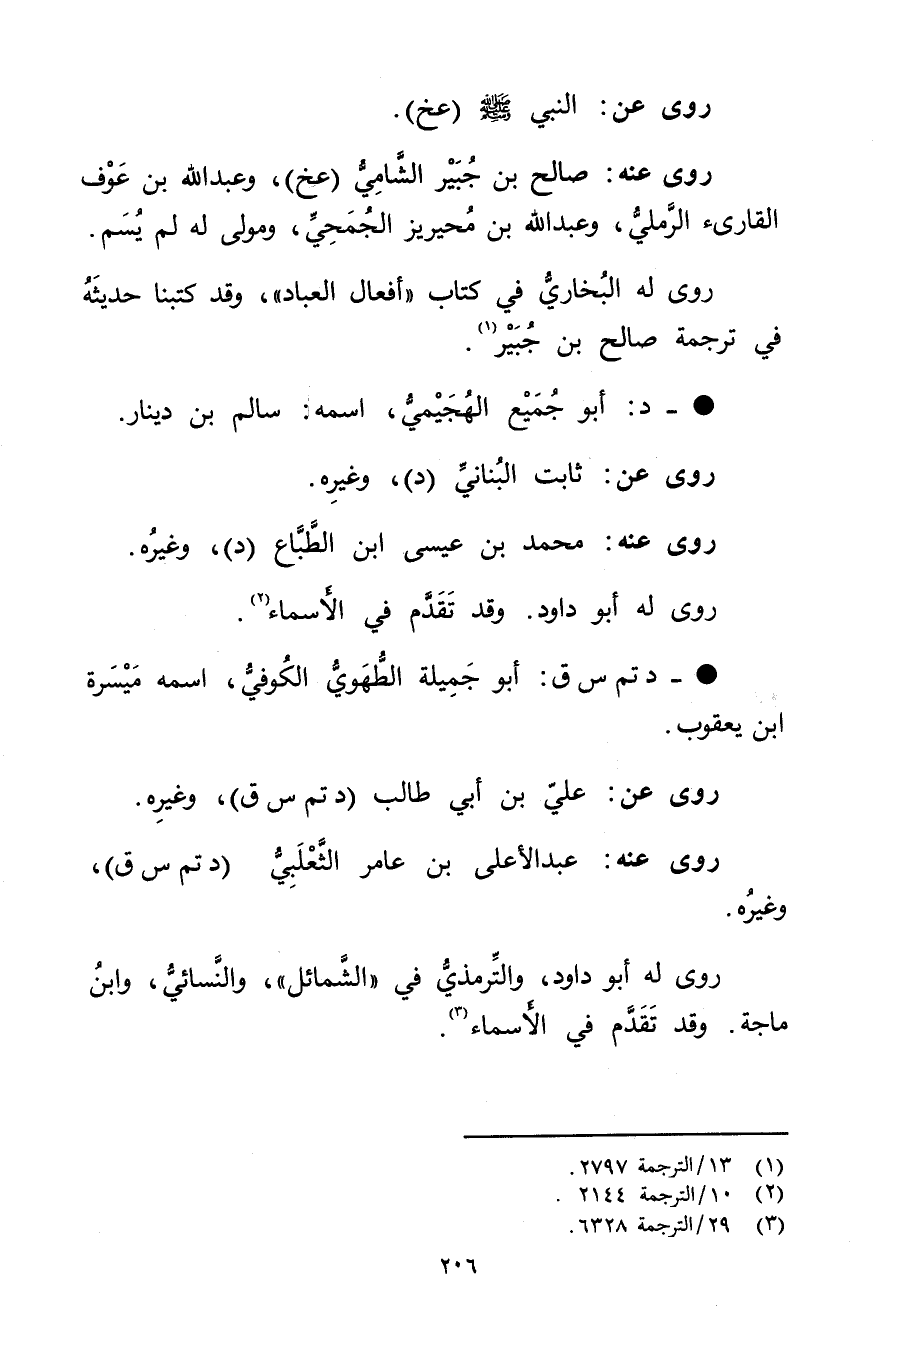 روى عن: النبي ﷺ (عخ).
روى عنه: صالح بن جُبَيْر الشَّامِيُّ (عخ)، وعبدالله بن عَوْف
القارىء الرَّمليُّ، وعبدالله بن مُحيريز الجُمَحِيِّ، ومولى له لم يُسَم.
روى له البُخاريُّ في كتاب «أفعال العباد»، وقد كتبنا حديثَهُ
في ترجمة صالح بن جُبَيْر(١).
● ـ د: أبو جُمَيْع الهُجَيْميُّ، اسمه: سالم بن دينار.
روى عن: ثابت البُنانيِّ (د)، وغيرِه.
روى عنه: محمد بن عيسى ابن الطَّبَّاع (د)، وغيرُه.
روى له أبو داود. وقد تَقَدَّم في الأَسماء(٢).
● ـ د تم س ق: أبو جَمِيلة الطُّهَويُّ الكُوفيُّ، اسمه مَيْسَرة
ابن يعقوب.
روى عن: عليّ بن أبي طالب (د تم س ق)، وغيرِه.
روى عنه: عبدالأعلى بن عامر الثَّعْلَبِيُّ (د تم س ق)،
وغيرُه.
روى له أبو داود، والتِّرمذيُّ في «الشَّمائل»، والنَّسائيُّ، وابنُ
ماجة. وقد تَقَدَّم في الأَسماء(٣).
(١) ١٣/الترجمة ٢٧٩٧.
(٢) ١٠/الترجمة ٢١٤٤.
(٣) ٢٩/الترجمة ٦٣٢٨.
٢٠٦